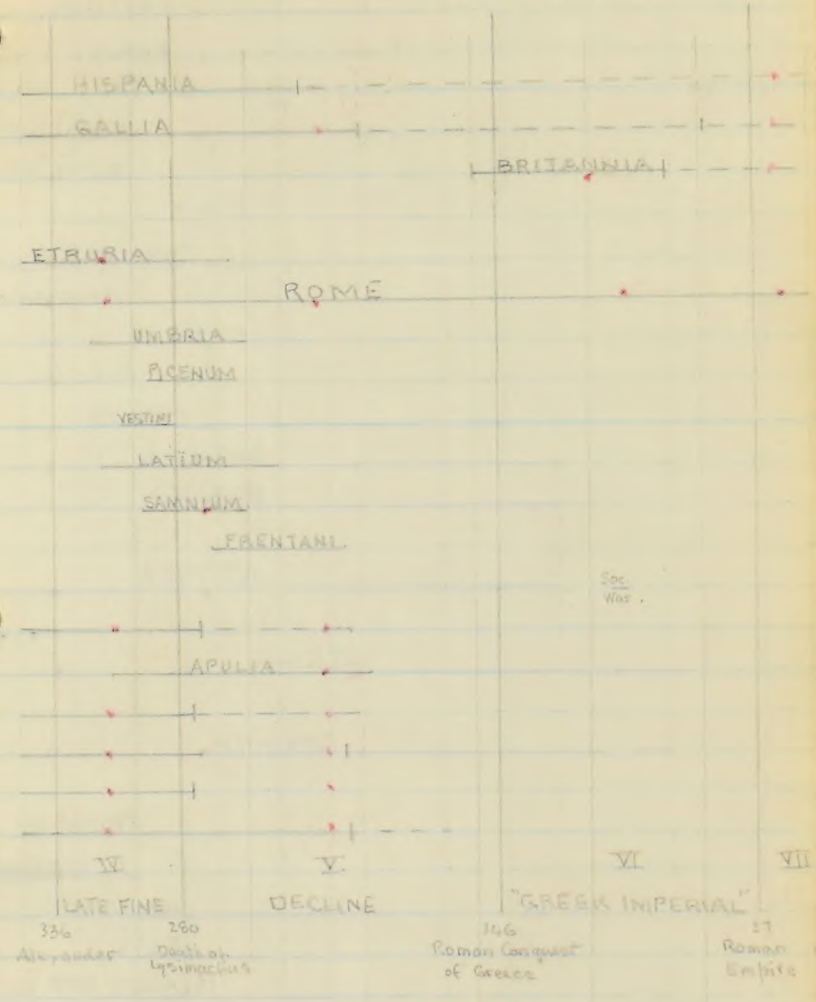 HISPANIA
GALLIA
BRITANNIA
ETRURIA
ROME
UMBRIA
PICENUM
VESTINI
LATIUM
SAMNIUM
FRENTANI
Soc.
War.
APULIA
IV
V.
VI
VII
LATE FINE
DECLINE
"GREEK IMPERIAL"
336
280
146
27
Alexander
Death of
Lysimachus
Roman Conquest
of Greece
Roman
Empire